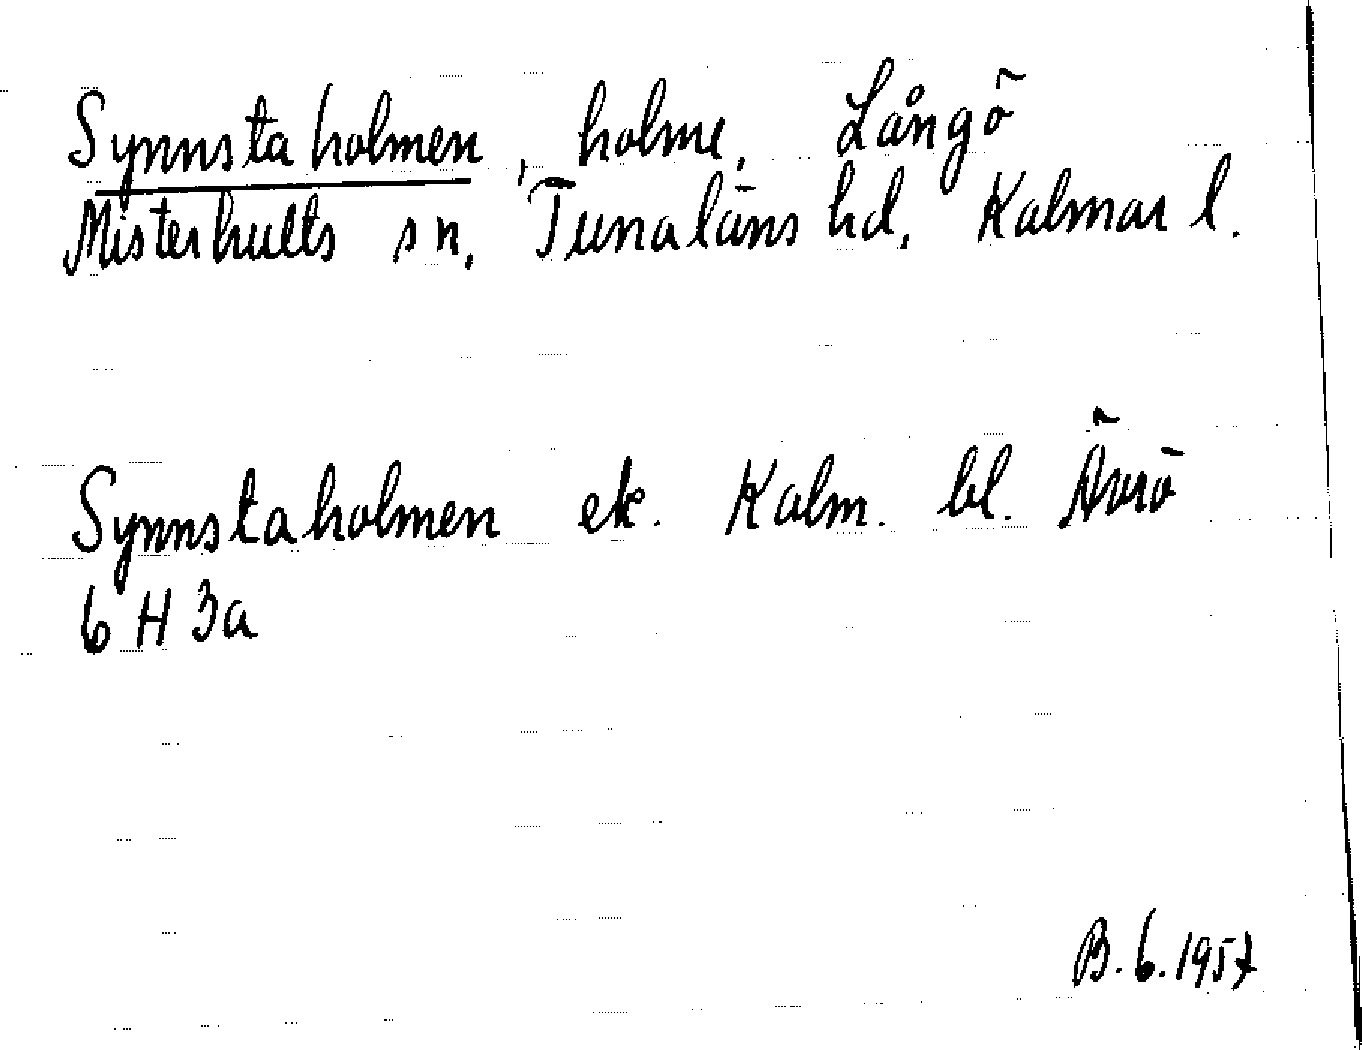 Synnstaholmen, holme, Långö
Misterhults sn, Tunaläns hd, Kalmar l.
Synnstaholmen ek. Kalm. bl. Ävrö
6 H 3a
B.G. 1957